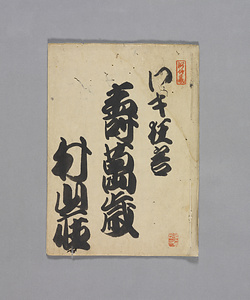 ワキ狂言
壽萬歳
村山座